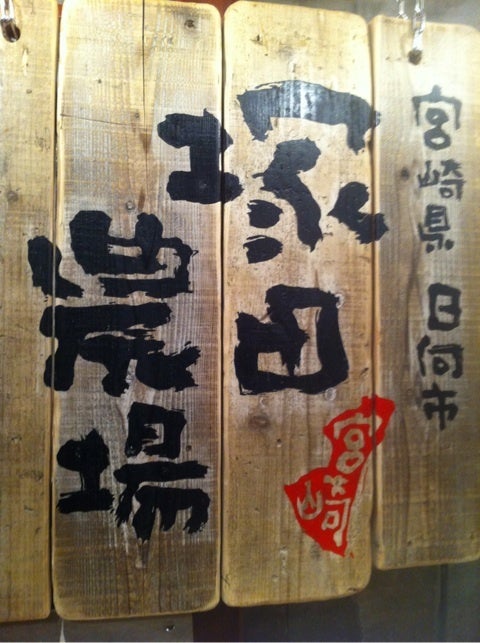 宮崎県 日向市
塚田
農場
宮崎